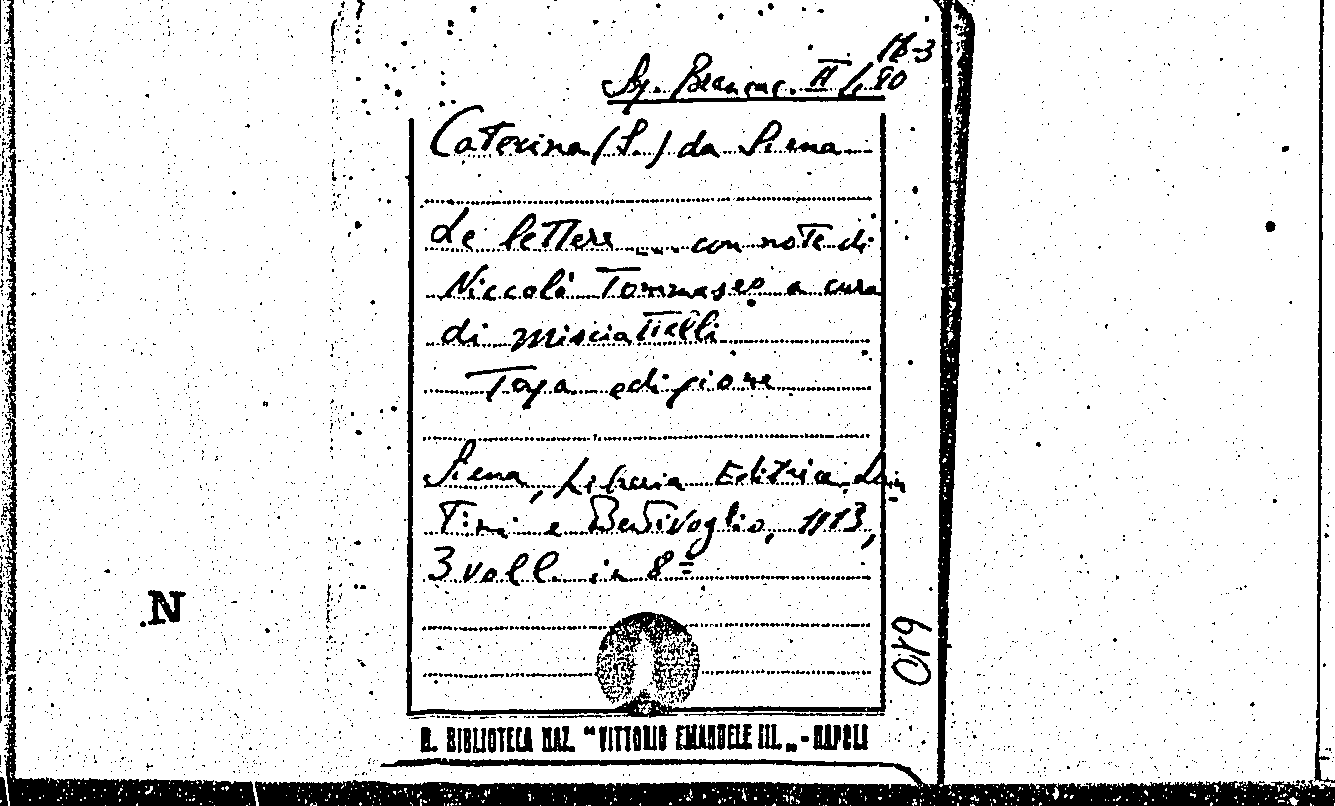 18-3
Sg. Brancac. II /, 80
Caterina (S.) da Siena
Le lettere ... con note di
Niccolò Tommaseo a cura
di Misciattelli
Terza edizione
Siena, Libreria Editrice
Tini e Bentivoglio, 1913,
3 voll. in 8º
N
610
R. BIBLIOTECA NAZ. "VITTORIO EMANUELE III." - NAPOLI